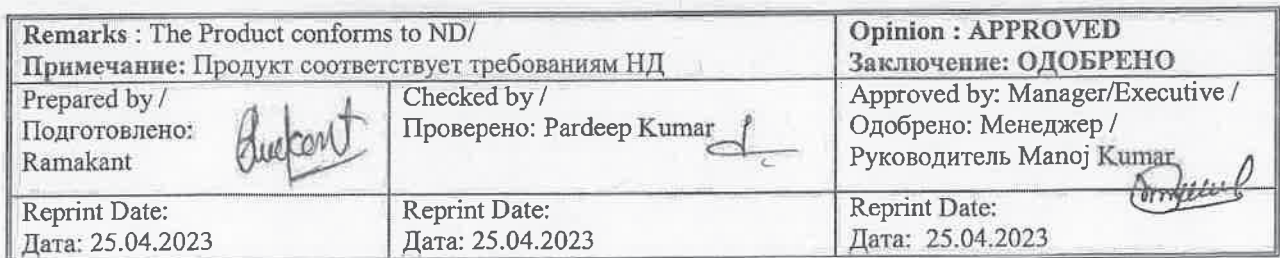 Remarks : The Product conforms to ND/
Примечание: Продукт соответствует требованиям НД
Opinion : APPROVED
Заключение: ОДОБРЕНО
Prepared by /
Подготовлено:
Ramakant
Checked by /
Проверено: Pardeep Kumar
Approved by: Manager/Executive /
Одобрено: Менеджер /
Руководитель Manoj Kumar
Reprint Date:
Дата: 25.04.2023
Reprint Date:
Дата: 25.04.2023
Reprint Date:
Дата: 25.04.2023